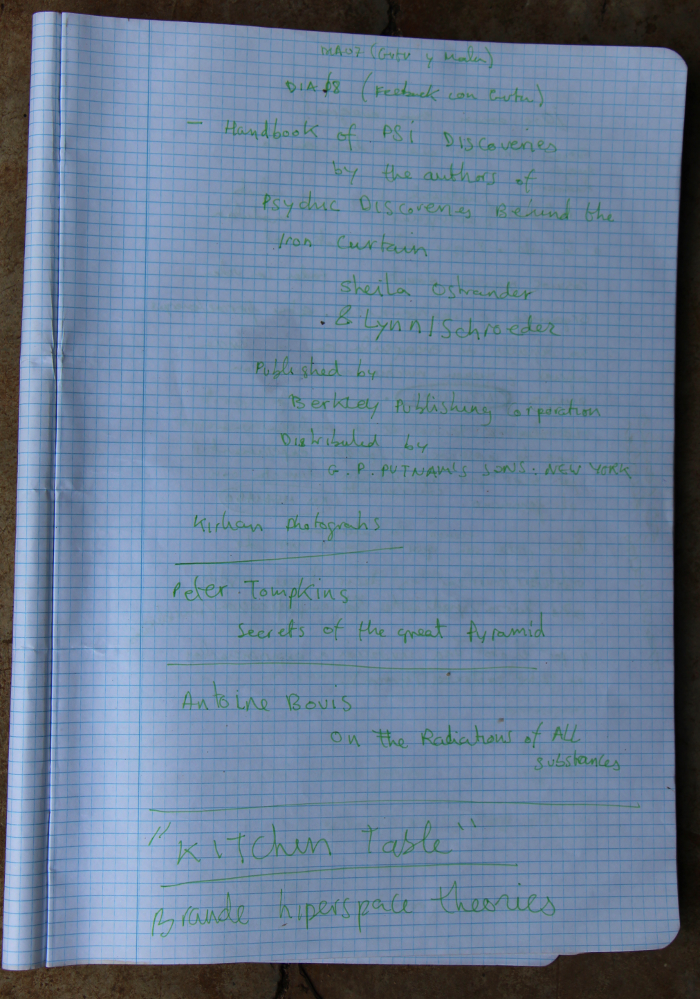 (Gutu y Mala)
DIA 08 (Feeback con Gutu)
- Handbook of PSi Discoveries
by the authors of
Psychic Discoveries Behind the
Iron Curtain
Sheila Ostrander
& Lynn / Schroeder
Published by
Berkley Publishing Corporation
Distributed by
G. P. PUTNAM'S SONS. NEW YORK
Kirlian Photograhs
Peter Tompkins
Secrets of the great Pyramid
Antoine Bovis
On the Radiations of All
substances
"KITchen Table"
Braude hiperspace theories